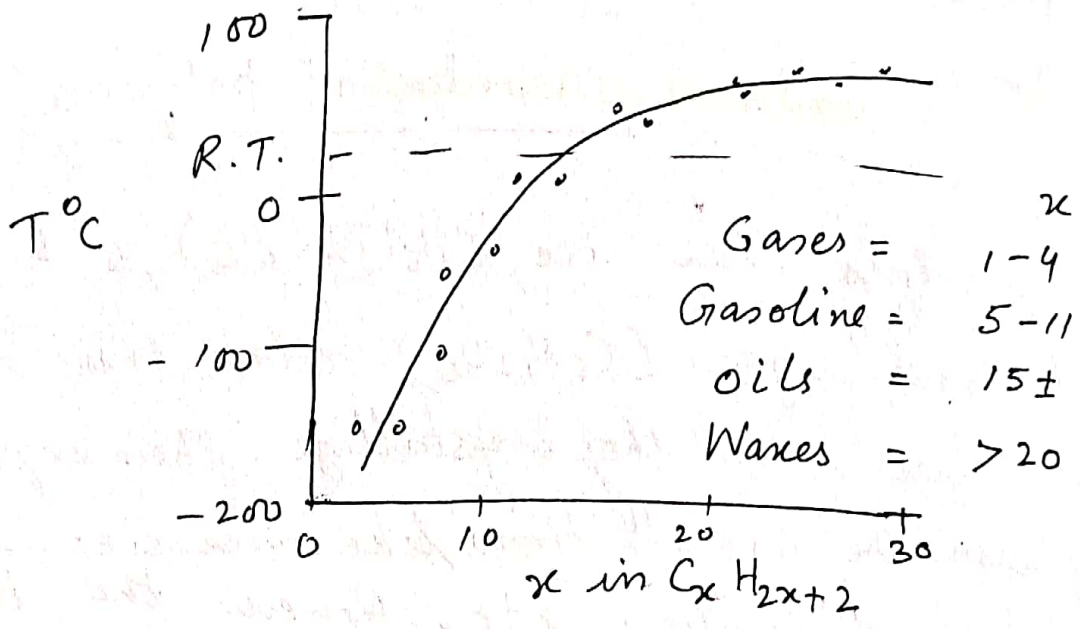 100
R.T.
0
T°C
- 100
- 200
0 10 20 30
x in CxH2x+2
x
Gases = 1-4
Gasoline = 5-11
oils = 15±
Waxes = >20